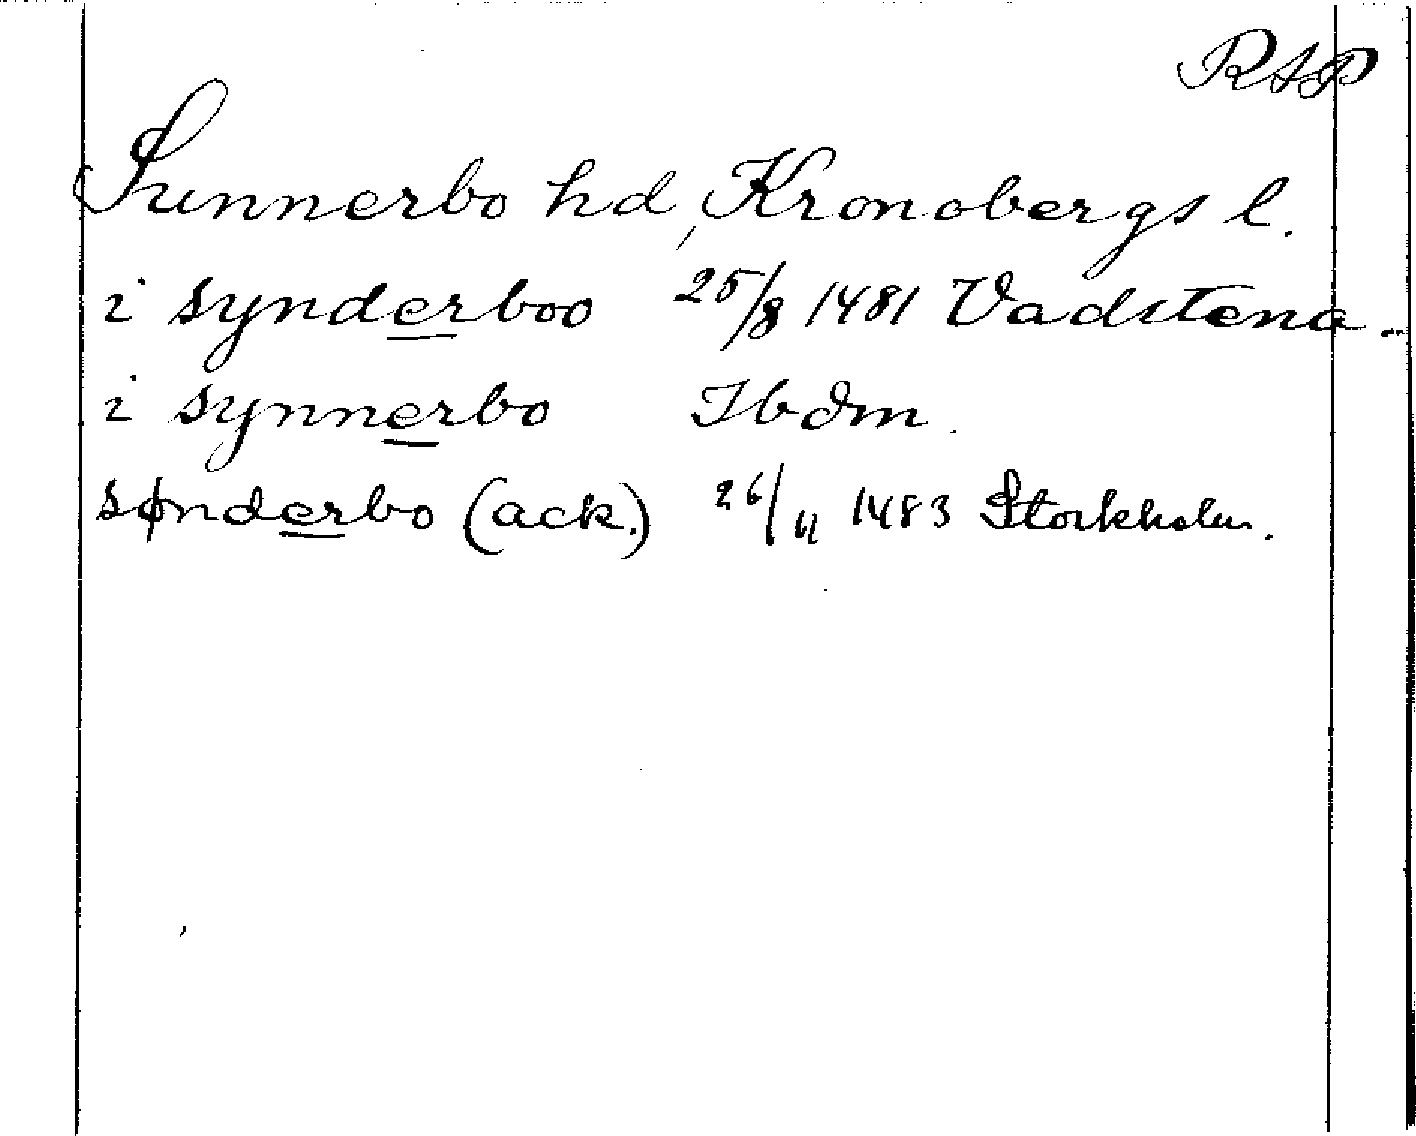 RAP
Sunnerbo hd, Kronobergs l.
i synderboo 25/8 1481 Vadstena.
i synnerbo Ibdm.
sønderbo (ack.) 26/11 1483 Stockholm.